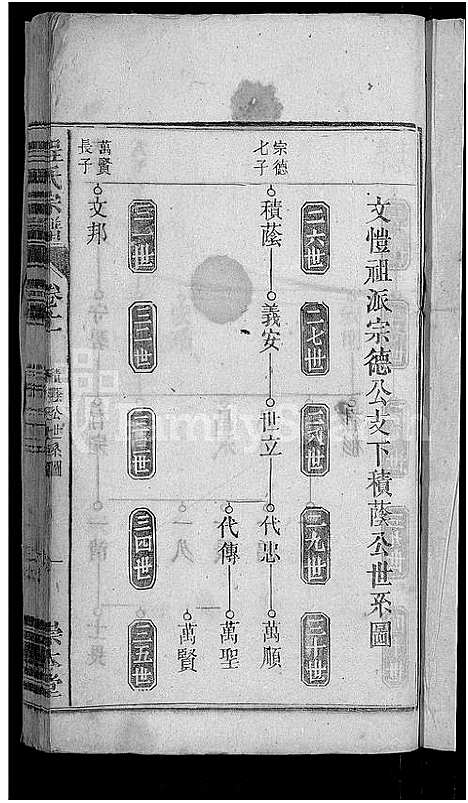 文愷祖派宗德公支下積蔭公世系圖
二六世
二七世
二八世
二九世
三十世
宗德
七子
積蔭
義安
世立
代忠
萬順
代傳
萬聖
萬賢
三一世
三二世
三三世
三四世
三五世
萬賢
長子
文邦
積蔭公世系圖
FamilySearch